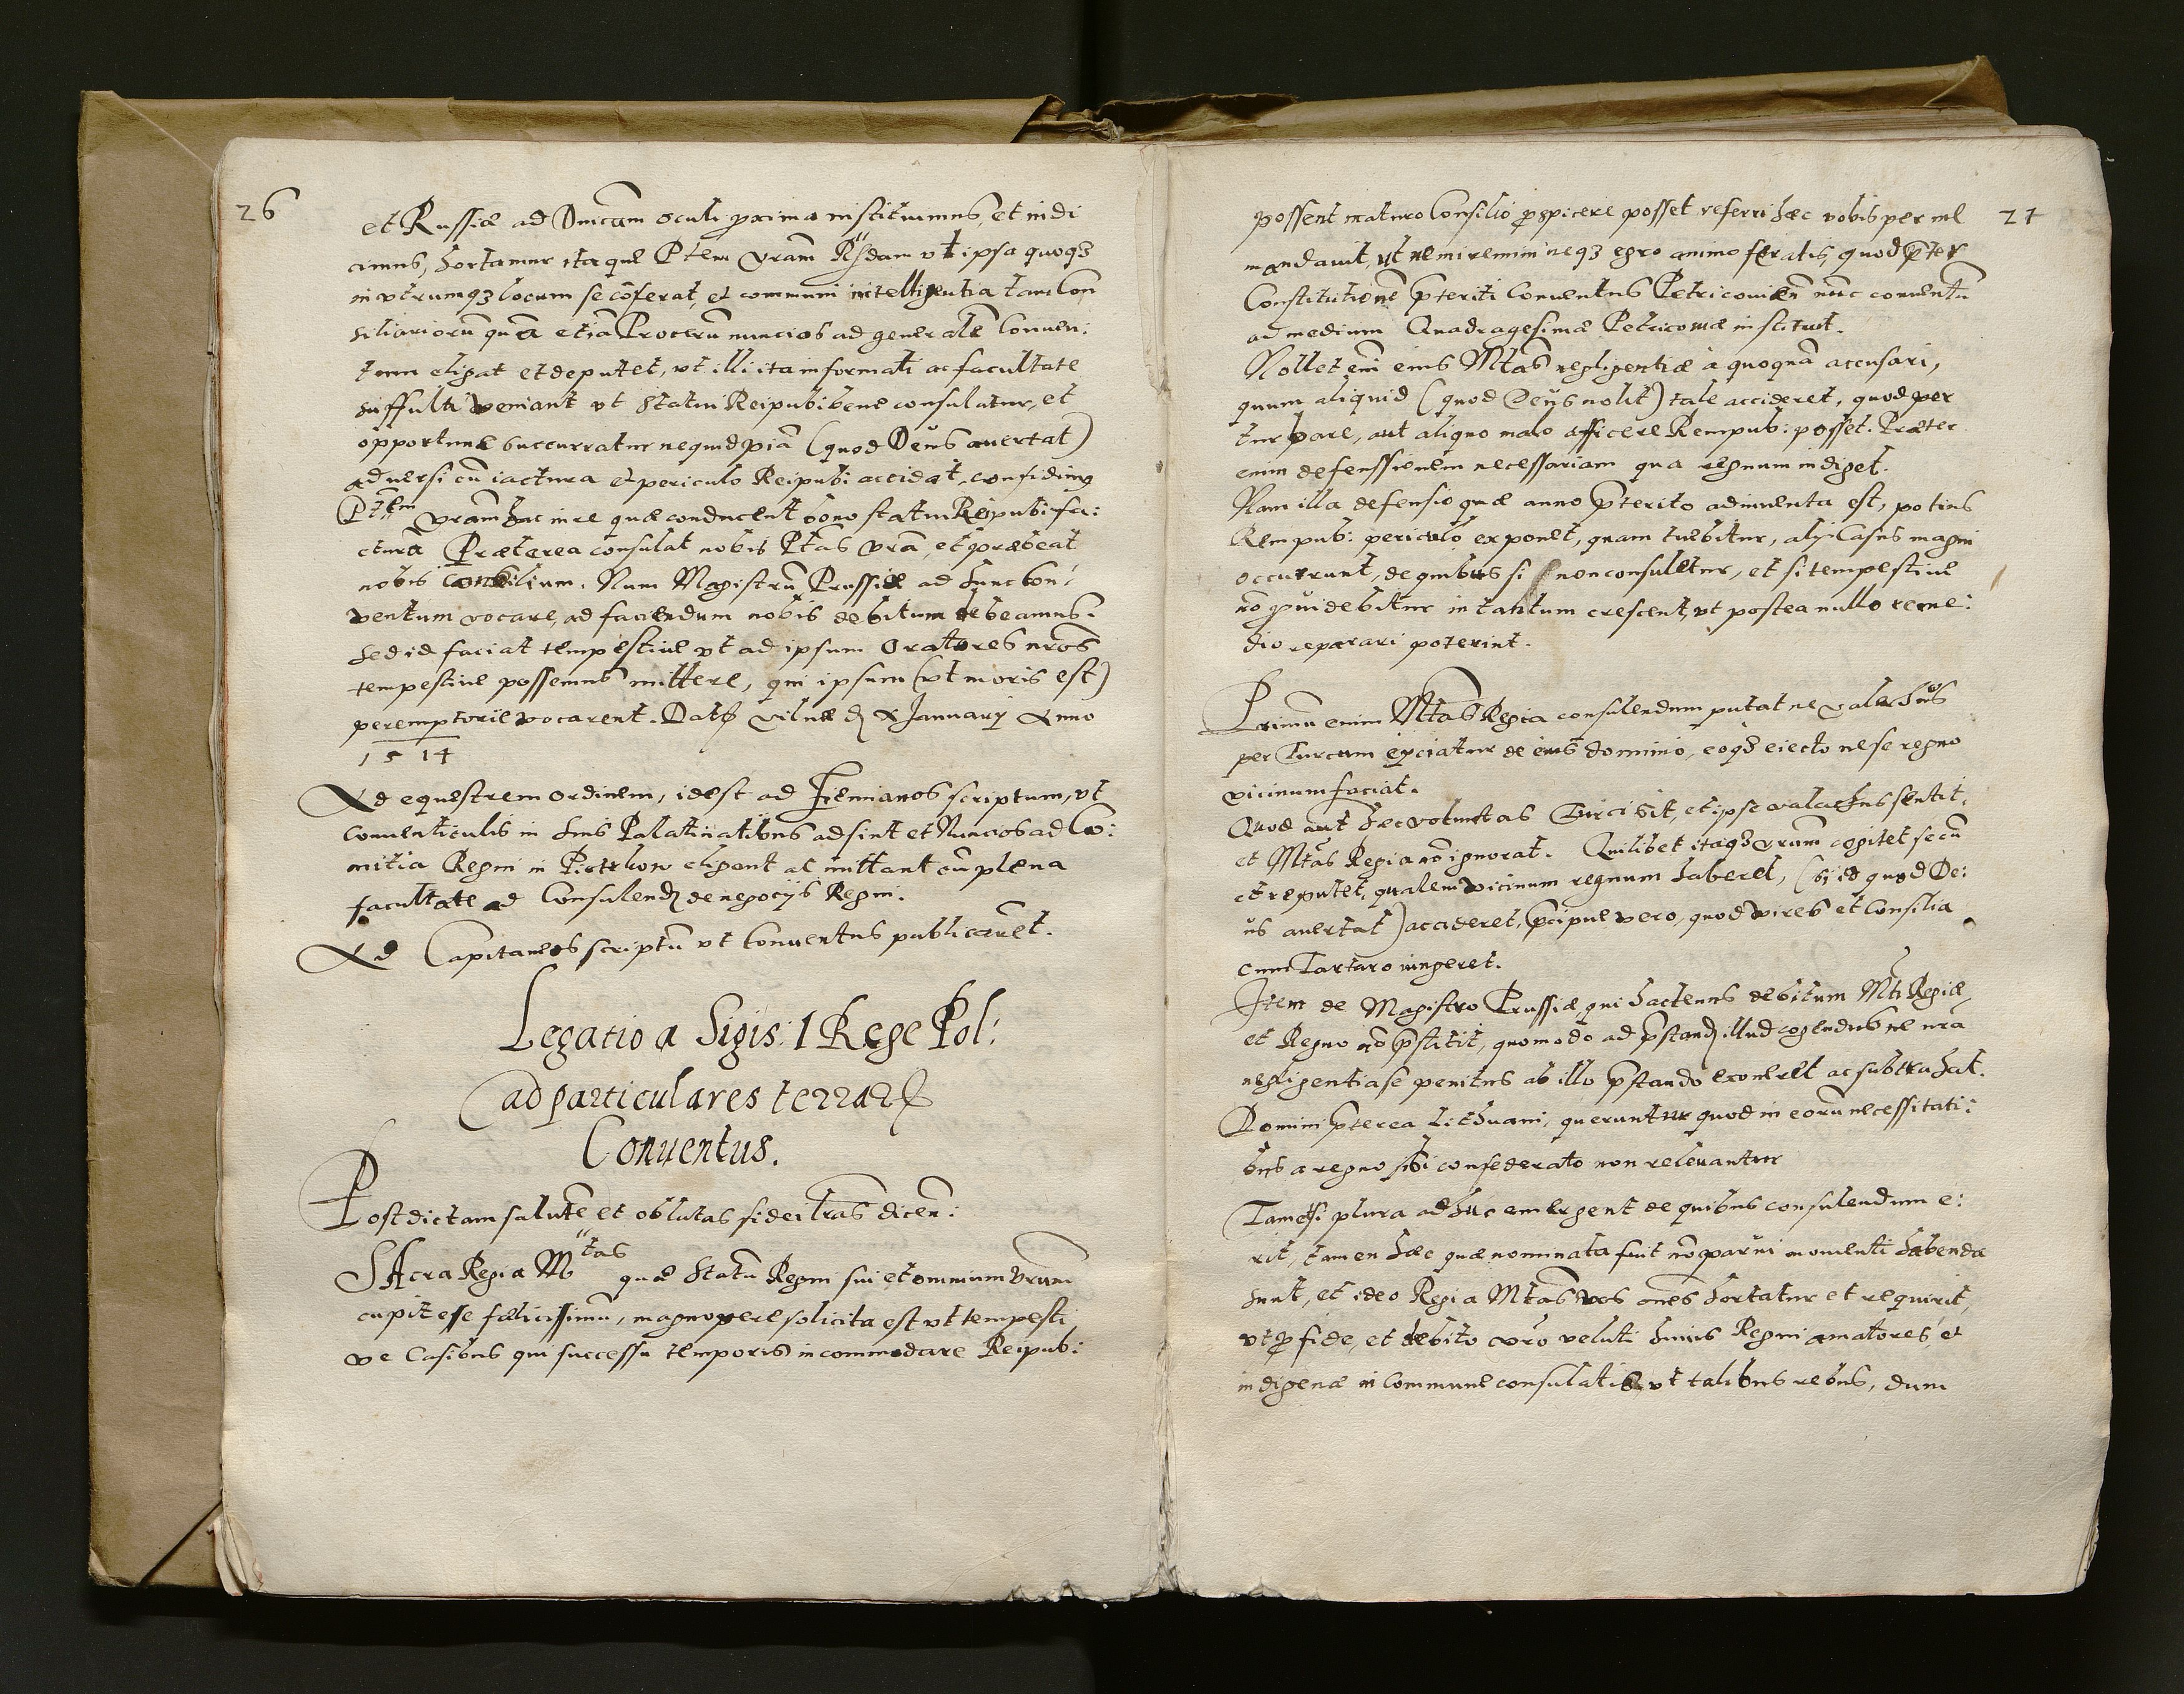 26
et Russiæ ad Dnicam oculi pxima instituimus, et indi
cimus, hortamur itaque Ptem vram Rssdam vt ipsa quoqз
in vtrumqз locum se cōferat, et communi intelligentia tam Con
siliariorū quā etiā Procerū nuncios ad generalē Conven:
tum eligat et deputet, vt illi ita informati ac facultate
suffulti veniant vt statui Reipub: bene consulatur, et
opportune succurratur ne quid piā (quod Deus avertat)
adversi cū iactura et periculo Reipub: accidat, confidimus
Ptem vram hac in re quæ conducent bono statui Reipub: fa:
cturā Præterea consulat nobis Ptas vra, et præbeat
nobis consilium. Num Magistrū Prussiæ ad hunc con:
ventum vocare, ad faciendum nobis debitum debeamus:
Sed id faciat tempestive vt ad ipsum Oratores nros
tempestive possemus mittere, qui ipsum (vt moris est)
peremptorie vocarent. Dat Vilnæ d X January Anno
1514
Ad equestrem ordinem, idest ad Ziemianos scriptum, vt
conventiculis in suis Palatinatibus adsint et Nuncios ad Co:
mitia Regni in Piotrkow eligant ac mittant cū plena
facultate ad Consulend de negocijs Regni.
Ad Capitaneos scriptū vt Conventus publicarēt.
Legatio a Sigis: 1 Rege Pol:
ad particulares terrar
Conventus.
Post dictam salutē et oblatas fidei lras dicen:
SAcra Regia Mtas quæ Statū Regni sui et omnium vrum
cupit esse fælicissimū, magnopere solicita est vt tempesti
ve Casibus qui successu temporis incommodare Reipub:
27
possent maturo Consilio pspicere posset referri hæc vobis per me
mandavit, ut ne miremini neqз egro animo feratis, quod pter
Constitutionē pteriti Conventus Petricovien nūc conventū
ad medium Quadragesimæ Petricoviæ instituit.
Nollet eni eius Mtas negligentiæ a quoquā accusari,
quum aliquid (quod Deus nolit) tale accideret, quod per
turbare, aut aliquo malo afficere Rempub: posset. Præter
enim defenssionem necessariam qua regnum indiget.
Nam illa defensio quæ anno pterito adinventa est, potius
Rempub: periculo exponet, quam tuebitur, alij Casus magni
occurrunt, de quibus si non consuletur, et si tempestive
nō pvidebitur in tantum crescent, vt postea nullo reme:
dio reparari poterint.
Primū enim Mtas Regia consulendum putat ne valachus
per Turcum eijciatur de eius dominio, eoqз eiecto ne se regno
vicinum faciat.
Quod aut hæc voluntas Turci sit, et ipse valachus sentit,
et Mtas Regia nō ignorat. Quilibet itaqз vrum cogitet secū
et reputet, qualem vicinum regnum haberet, (si id quod De:
us avertat) accideret, pcipue vero, quod vires et Consilia
cum Tartaro iungeret.
Item de Magistro Prussiæ, qui hactenus debitum Mti Regiæ
et Regno nō pstitit, quomodo ad pstand illud cogendus ne nra
negligentia se penitus ab illo pstando exoneret ac subtrahat.
Domini pterea Lithuani, queruntur quod in eorū necessitati:
bus a regno sibi confederato non relevantur
Tametsi plura adhuc emergent de quibus consulendum e:
rit, tamen hæc quæ nominata sunt nō parvi momenti habenda
sunt, et ideo Regia Mtas vos oes hortatur et requirit,
vt p fide, et debito vro veluti huius Regni amatores, et
indigenæ in Commune consulatis, vt talibus rebus, dum